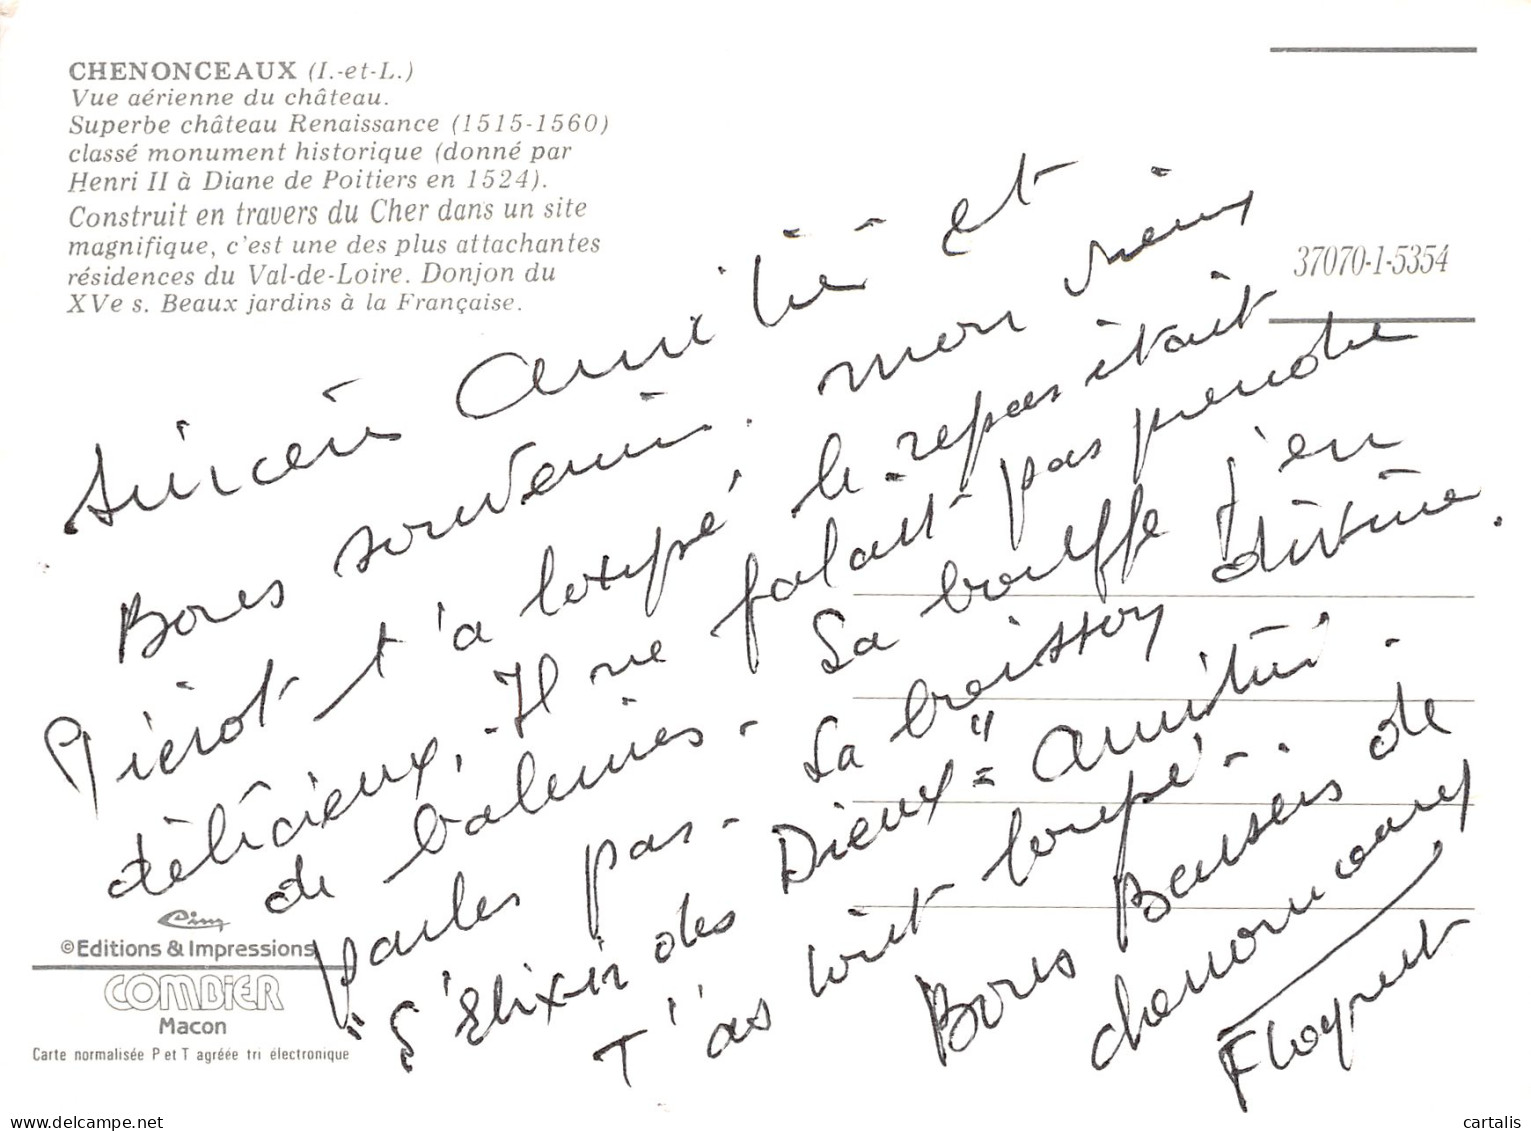 CHENONCEAUX (I.-et-L.)
Vue aérienne du château.
Superbe château Renaissance (1515-1560)
classé monument historique (donné par
Henri II à Diane de Poitiers en 1524).
Construit en travers du Cher dans un site
magnifique, c'est une des plus attachantes
résidences du Val-de-Loire. Donjon du
XVe s. Beaux jardins à la Française.
37070-1-5354
Sincère Amitié et
Bons souvenirs. mon vieux
Pierrot t'a loupé, le repas était
délicieux, Il ne falait pas prendre
de baleines - La bouffe j'en
parles pas - La boisson divine.
"L'Elixir des Dieux" = Amitié.
T'as tout loupé -.
Bons Baisers de
chenonceaux
Cim
©Editions & Impressions
COMBIER
Macon
Carte normalisée P et T agréée tri électronique
delcampe.net
cartalis